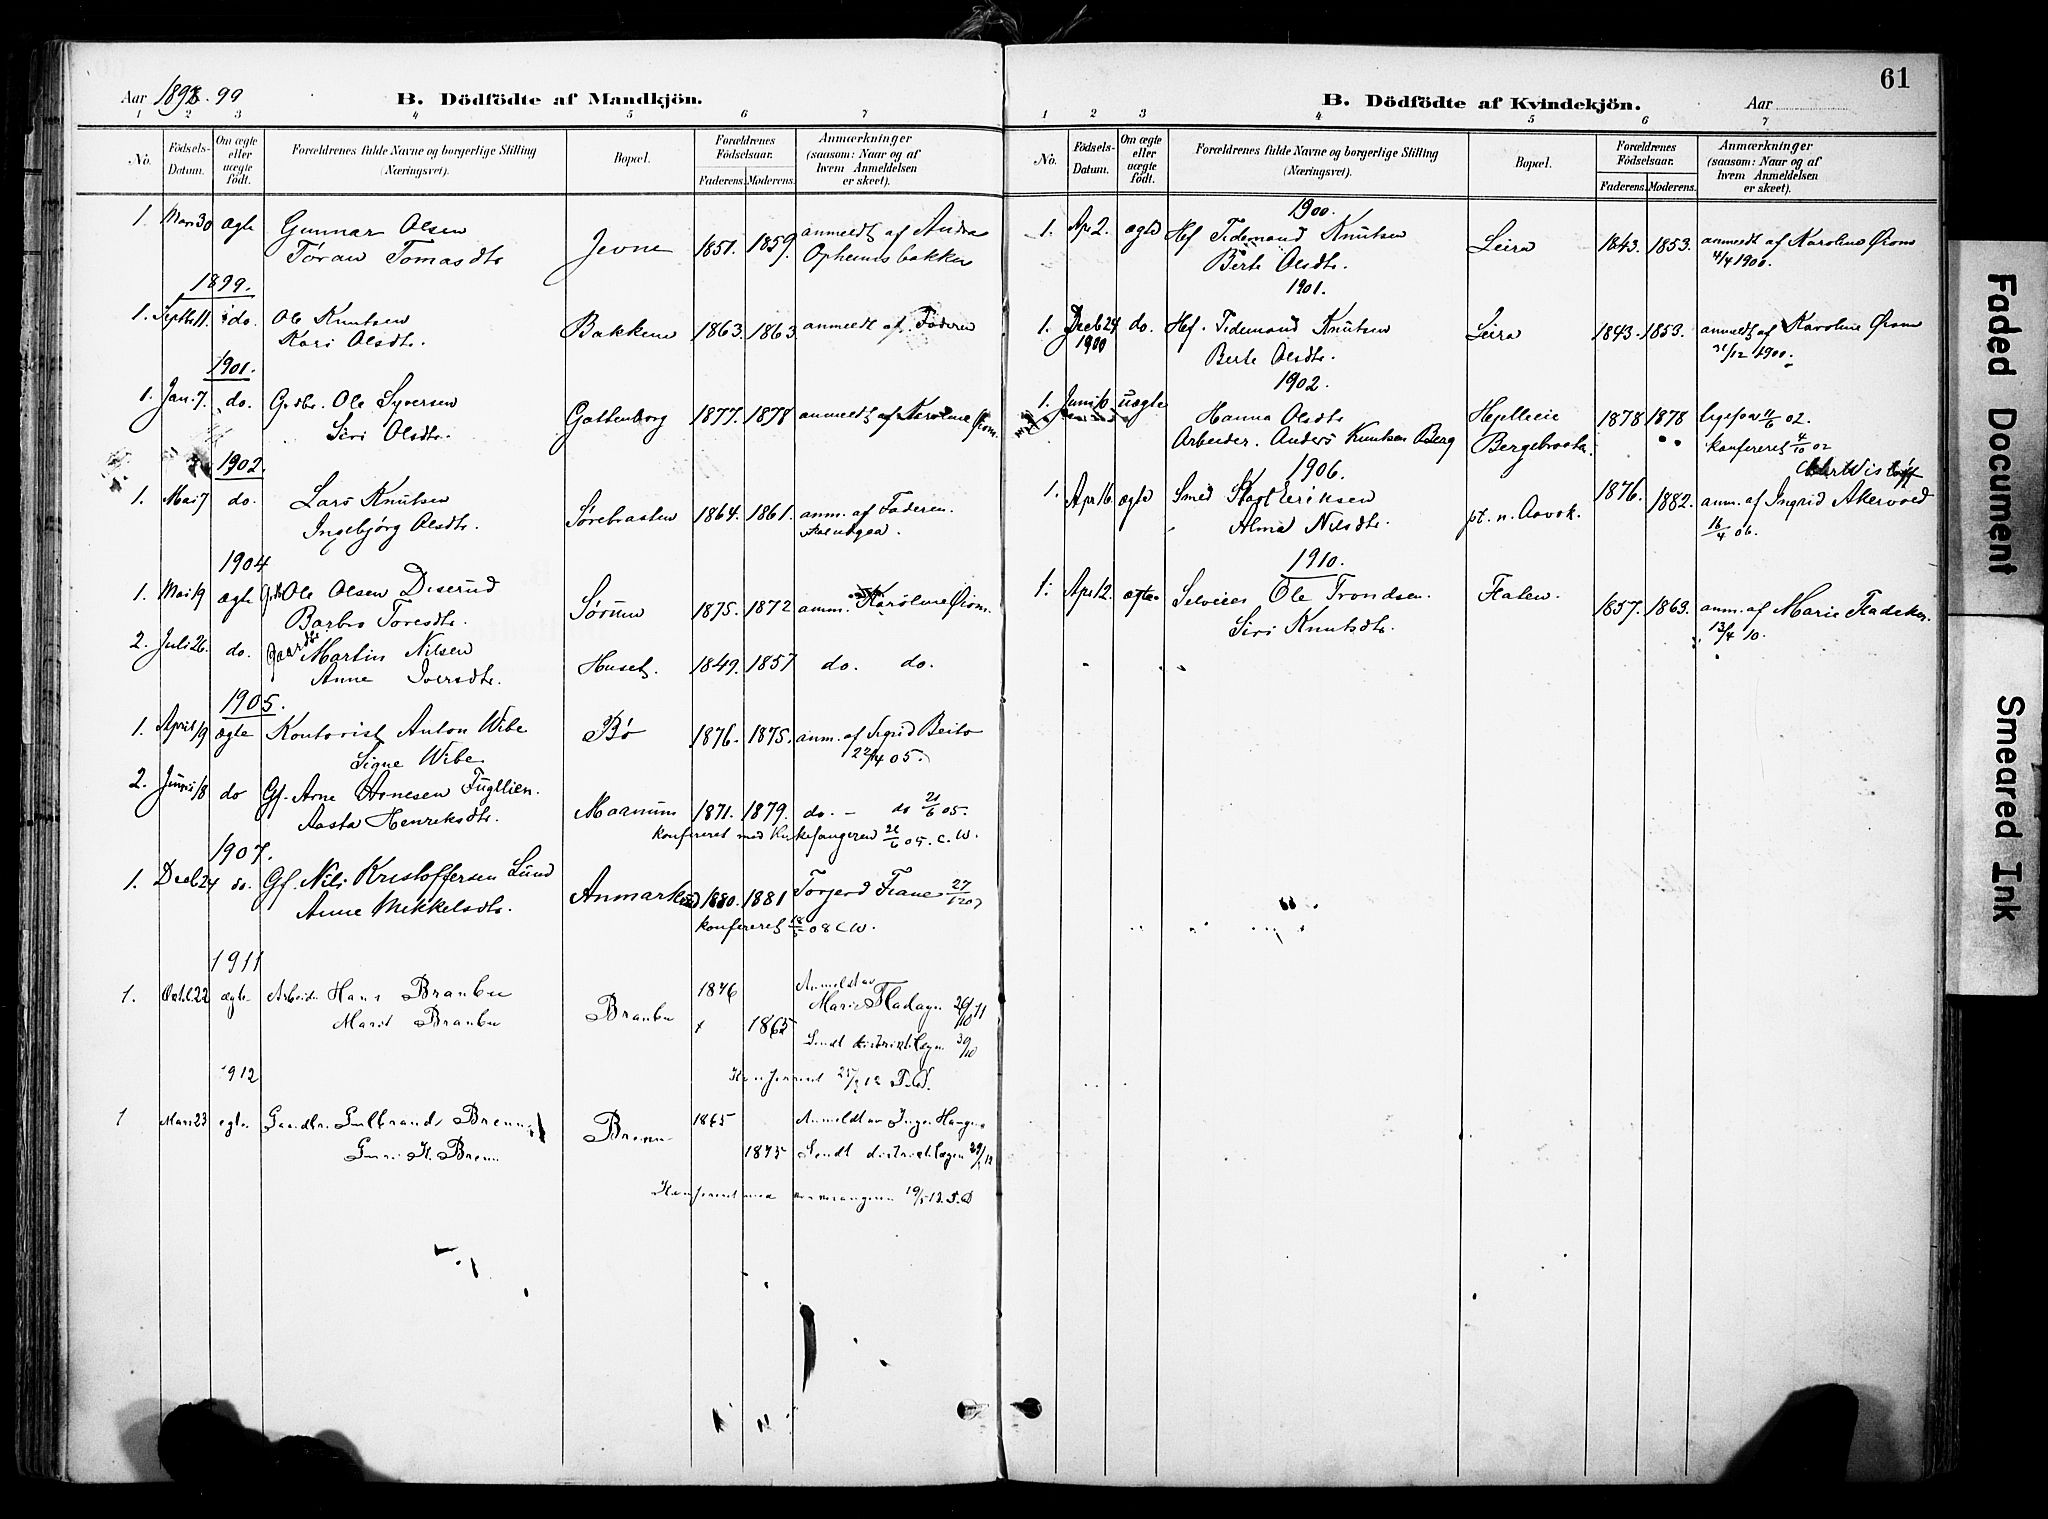 Aar 1898-99
B. Dödfödte af Mandkjön.
1 2 3 4 5 6 7
No.
Födsels-Datum.
Om ægte eller uægte födt.
Forældrenes fulde Navne og borgerlige Stilling (Næringsvei).
Bopæl.
Forældrenes Födselsaar.
Faderens. Moderens.
Anmærkninger (saasom: Naar og af hvem Anmeldelsen er skeet).
1. Mars 30 ægte Gunnar Olsen Jevne 1851. 1859. anmeldt af Andra
Töran Tomasdtr Opheimsbakken
1899.
1. Septbr 11. do. Ole Knutsen Bakkene 1863. 1863. anmeldt af Faderen
Kari Olsdtr.
1901.
1. Jan. 7. do. Grdbr. Ole Syversen Gottenborg 1877. 1878 anmeldt af Karoline Ørom.
Siri Olsdtr.
1902.
1. Mai 7 do. Lars Knutsen Sørebraaten 1864. 1861. anm. af Faderen.
Ingebjørg Olsdtr.
1904
1. Mai 19 ægte Grdb Ole Olsen Diserud Sørum 1875. 1872 anm. Karoline Ørom.
Barbro Toresdtr.
2. Juli 26. do. Gaardbr Martin Nilsen Huset. 1849. 1857 do. do.
Anne Iversdtr.
1905.
1. April 19 ægte Kontorist Anton Wibe Bø 1876. 1875. anm. af Sigrid Beito
Signe Wibe 22/4 05.
2. Juni 18 do Gf. Arne Arnesen Fugllien. Marnum 1871. 1879. do. - do 21/6 05.
Aasta Henriksdtr. konfereret med Kirkesangeren 26/6 05. C.W.
1907.
1. Decb 24 do. Gf. Nils Kristoffersen Lund Anmarkrud 1880. 1881 Torgerd Frane 27/12 07
Anne Mikkelsdtr. konfereret 18/5 08 CW.
1911
1. Oktb. 22 ægte Arbeider Hans Branbu Branbu 1846 Anmeldt av
Marit Branbu 1865 Marie Fladagen 26/10 11
Sendt distriktslægen 30/10
1912 Konfereret
1 Mars 23 egte. Gaardbr. Gulbrand Brenn Brenn 1865 Anmeldt av Inger Haugen
Guri K. Brenn 1875 Sendt distriktslægen
Konfereret med kirkesangeren 19/5 12. S.D
61
B. Dödfödte af Kvindekjön.
Aar
1 2 3 4 5 6 7
No.
Födsels-Datum.
Om ægte eller uægte födt.
Forældrenes fulde Navne og borgerlige Stilling (Næringsvei).
Bopæl.
Forældrenes Födselsaar.
Faderens. Moderens.
Anmærkninger (saasom: Naar og af hvem Anmeldelsen er skeet).
1900.
1. Apr 2. ægte Hef. Tidemand Knutsen Leira 1843. 1853. anmeldt af Karoline Ørom
Berte Olsdtr. 4/4 1900.
1901.
1. Decb 24 do. Hef. Tidemand Knutsen Leira 1843. 1853. anmeldt af Karoline Ørom
1900 Berte Olsdtr. 31/12 1900.
1902.
1. Juni 10 uægte Hanna Olsdtr Hjelleie 1878 1878 11/6 02.
Arbeider. Anders Knutsen Berg Bergebraaten konfereret 4/10 02
1906.
1. Apr 16. ægte Smed Eriksen pt. n. Aavok. 1876. 1882. anm. af Ingrid Akervold
Alma Nilsdtr. 16/4 06.
1910.
1. Apr 12. ægte Selveier Ole Trondsen. Flaten. 1857. 1863. anm. af Marie Fladeken
Siri Knutsdtr. 13/4 10.
Faded Document
Smeared Ink